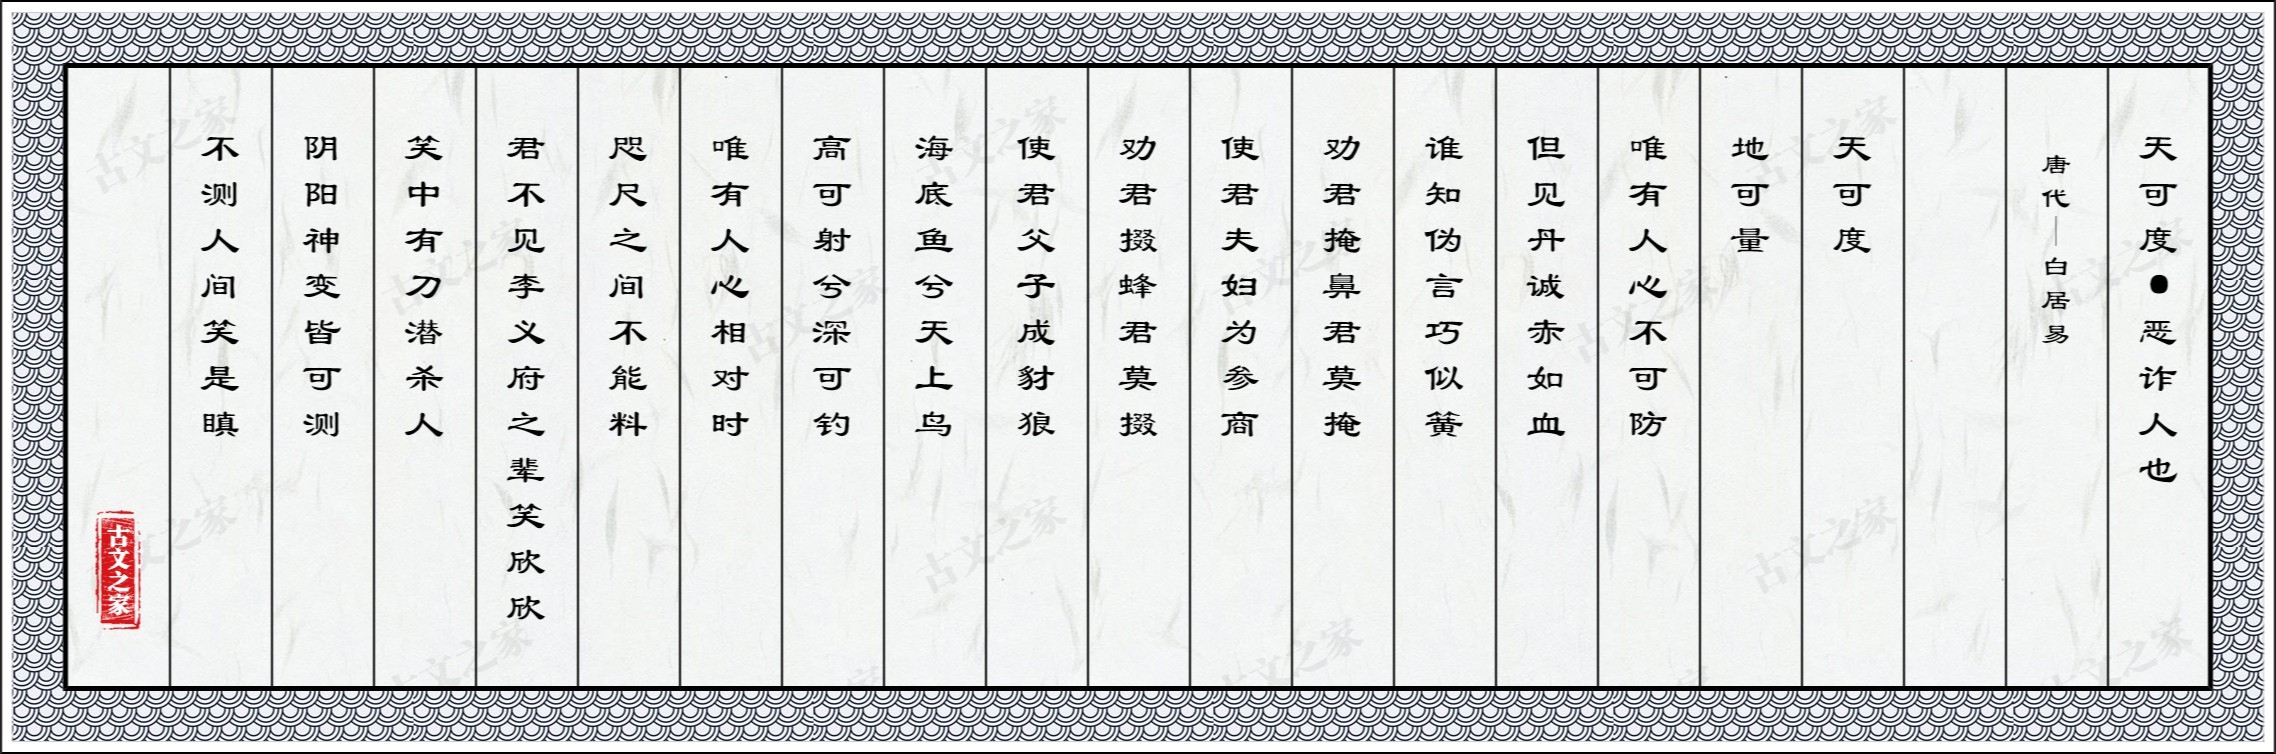 天可度●恶诈人也
唐代—白居易
天可度
地可量
唯有人心不可防
但见丹诚赤如血
谁知伪言巧似簧
劝君掩鼻君莫掩
使君夫妇为参商
劝君掇蜂君莫掇
使君父子成豺狼
海底鱼兮天上鸟
高可射兮深可钓
唯有人心相对时
咫尺之间不能料
君不见李义府之辈笑欣欣
笑中有刀潜杀人
阴阳神变皆可测
不测人间笑是瞋
古文之家